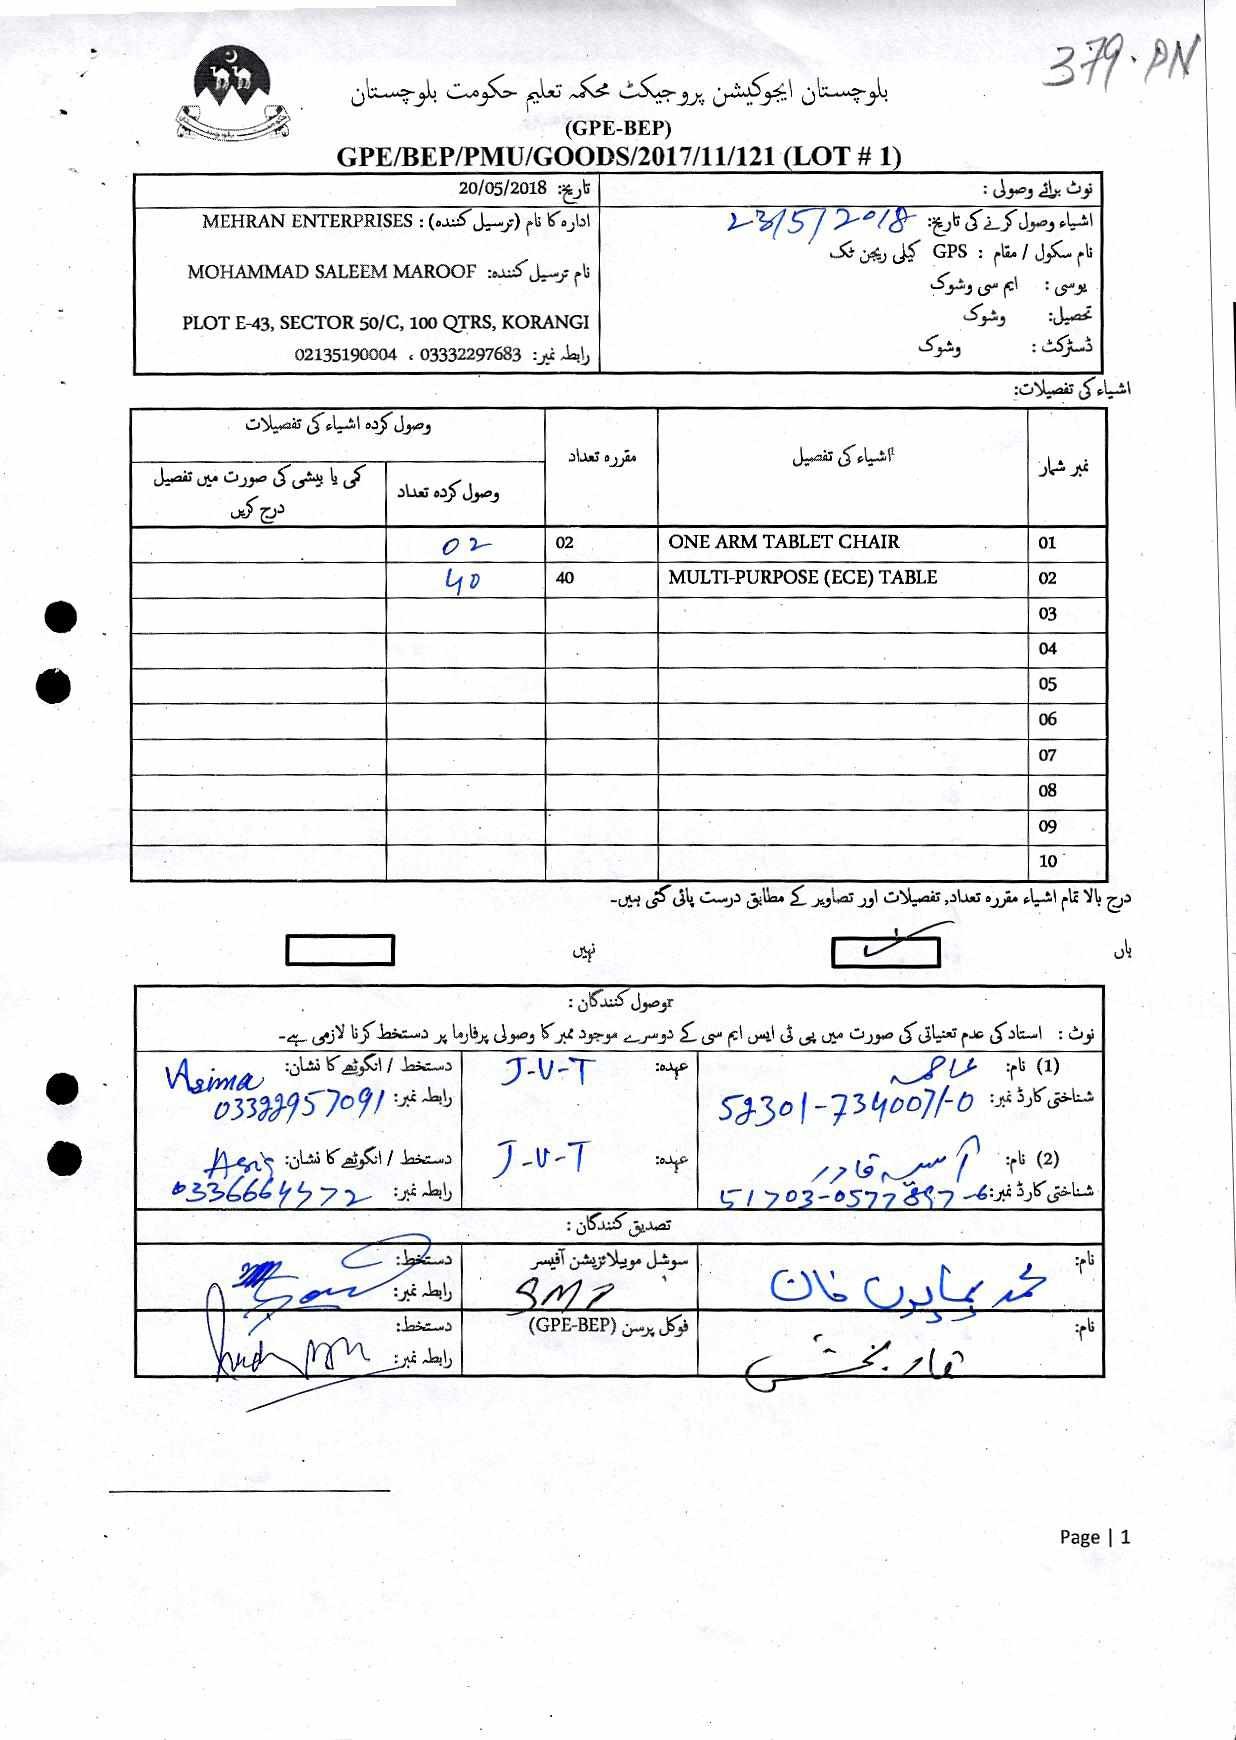 379.PN
بلوچستان ایجوکیشن پروجیکٹ محکمہ تعلیم حکومت بلوچستان
(GPE-BEP)
GPE/BEP/PMU/GOODS/2017/11/121 (LOT # 1)
نوٹ برائے وصولی :
اشیاء وصول کرنے کی تاریخ: 23/5/2018
نام سکول / مقام : GPS کیلی ریجن ٹک
یوسی : ایم سی وشوک
تحصیل: وشوک
ڈسٹرکٹ : وشوک
تاریخ: 20/05/2018
ادارہ کا نام (ترسیل کنندہ) : MEHRAN ENTERPRISES
نام ترسیل کنندہ: MOHAMMAD SALEEM MAROOF
PLOT E-43, SECTOR 50/C, 100 QTRS, KORANGI
رابطہ نمبر: 03332297683 ، 02135190004
اشیاء کی تفصیلات:
نمبر شمار اشیاء کی تفصیل مقررہ تعداد وصول کردہ اشیاء کی تفصیلات
وصول کردہ تعداد کمی یا بیشی کی صورت میں تفصیل درج کریں
01 ONE ARM TABLET CHAIR 02 02
02 MULTI-PURPOSE (ECE) TABLE 40 40
03
04
05
06
07
08
09
10
درج بالا تمام اشیاء مقررہ تعداد, تفصیلات اور تصاویر کے مطابق درست پائی گئی ہیں۔
ہاں نہیں
وصول کنندگان :
نوٹ : استاد کی عدم تعیناتی کی صورت میں پی ٹی ایس ایم سی کے دوسرے موجود ممبر کا وصولی پرفارما پر دستخط کرنا لازمی ہے۔
(1) نام: عاصمہ عہدہ: J-V-T دستخط / انگوٹھے کا نشان: Asima
شناختی کارڈ نمبر: 52301-7340071-0 رابطہ نمبر: 03322957091
(2) نام: آسیہ قادر عہدہ: J-V-T دستخط / انگوٹھے کا نشان:
شناختی کارڈ نمبر: 51703-0577897-6 رابطہ نمبر: 0336664572
تصدیق کنندگان :
نام: محمد ہمایوں خان سوشل موبیلائزیشن آفیسر دستخط:
رابطہ نمبر:
نام: قادر بخش فوکل پرسن (GPE-BEP) دستخط:
رابطہ نمبر:
Page | 1